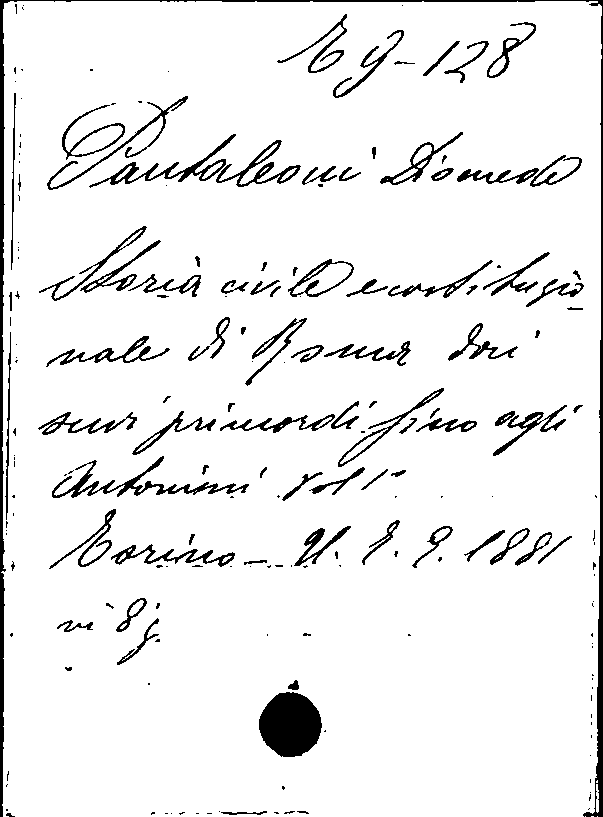 E g - 128
Pantaleoni Diomede
Storia civile e costituzio-
nale di Roma dai
suoi primordi fino agli
Antonini Vol 1º
Torino - U. T. E. 1881
in 8º g.